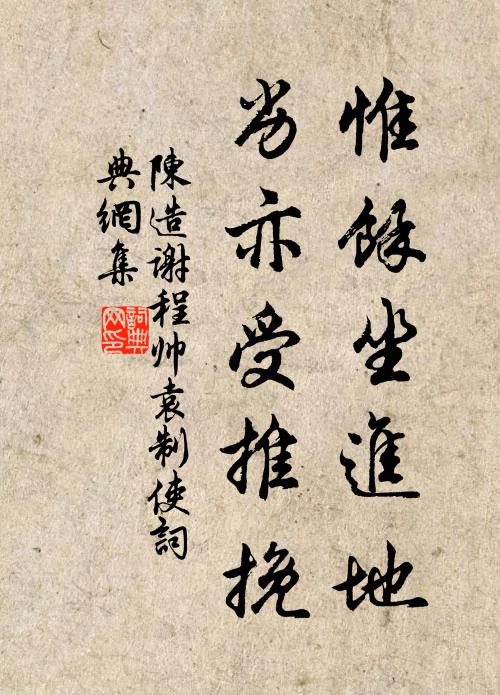 惟餘坐進地
劣亦受推挽
陳造謝程帅袁制使詞
典網集
詞典
网印